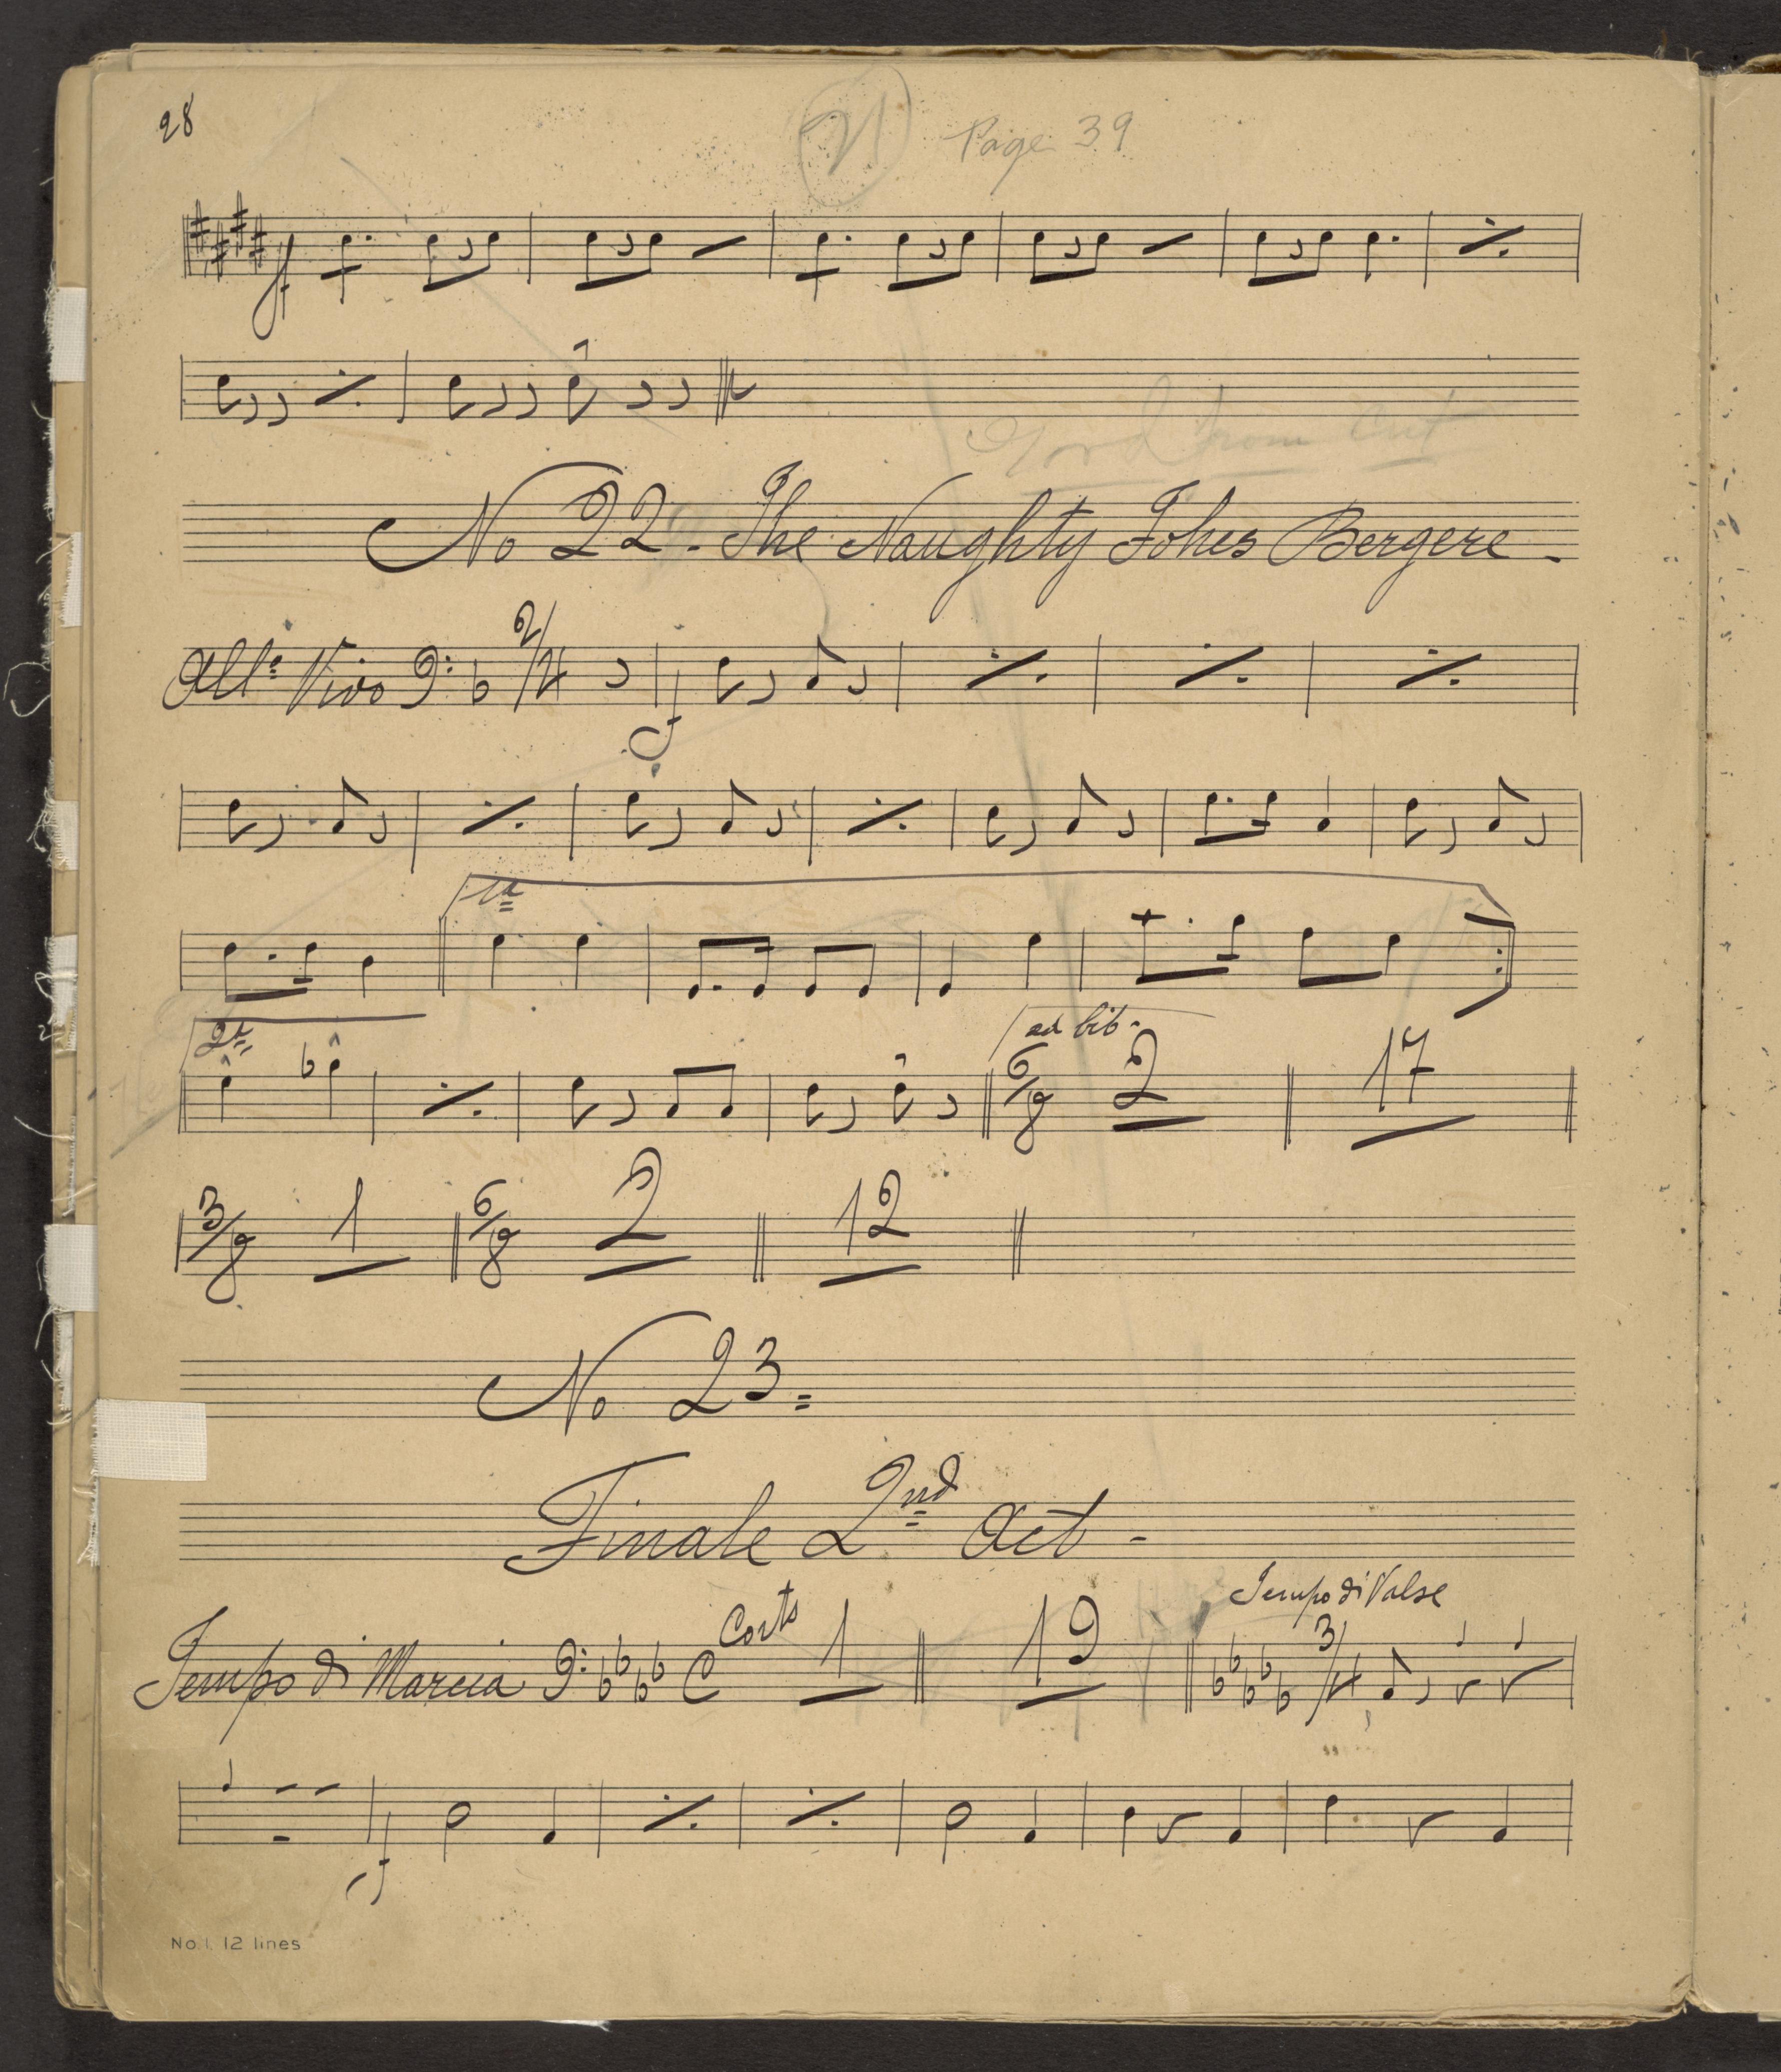 28
21 Page 39
f
Good from Cut
No 22. The Naughty Folies Bergere -
All° Vivo 2/4
f
1a
2a ad lib - 6/8 2 17
3/8 1 6/8 2 12
No 23 =
Finale 2nd Act -
Tempo di Valse
Tempo di Marcia C Corts 1 19 3/4
f
No. 1. 12 lines